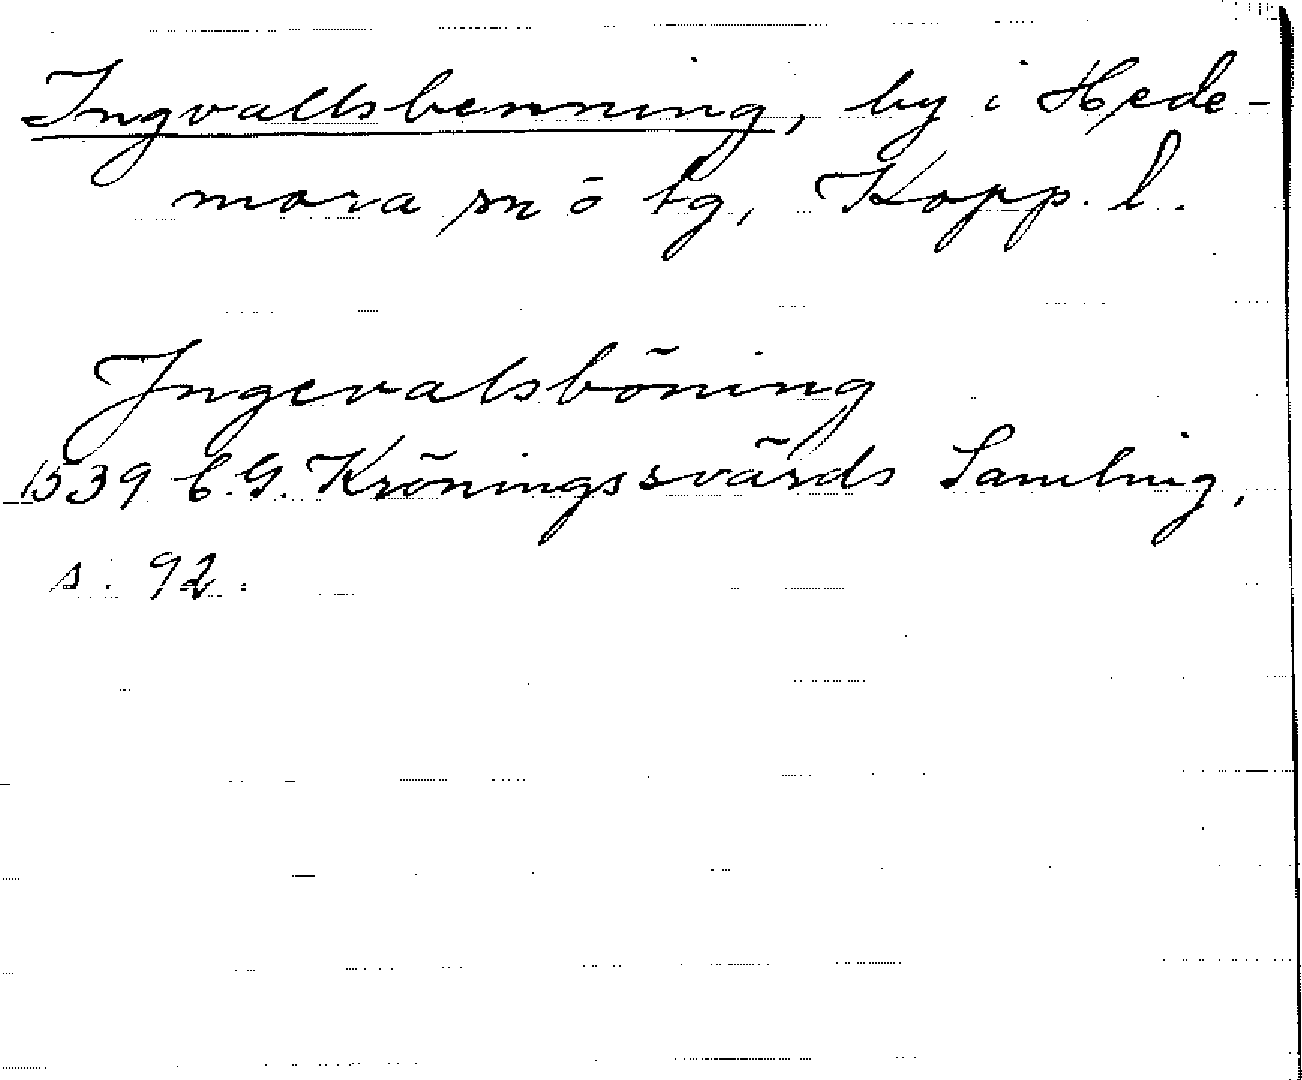 Ingvallsbenning, by i Hede-
mora sn ö tg, Kopp. l.
Ingevalsböning
1539 C.G. Kröningssvärds Samling,
s. 92.